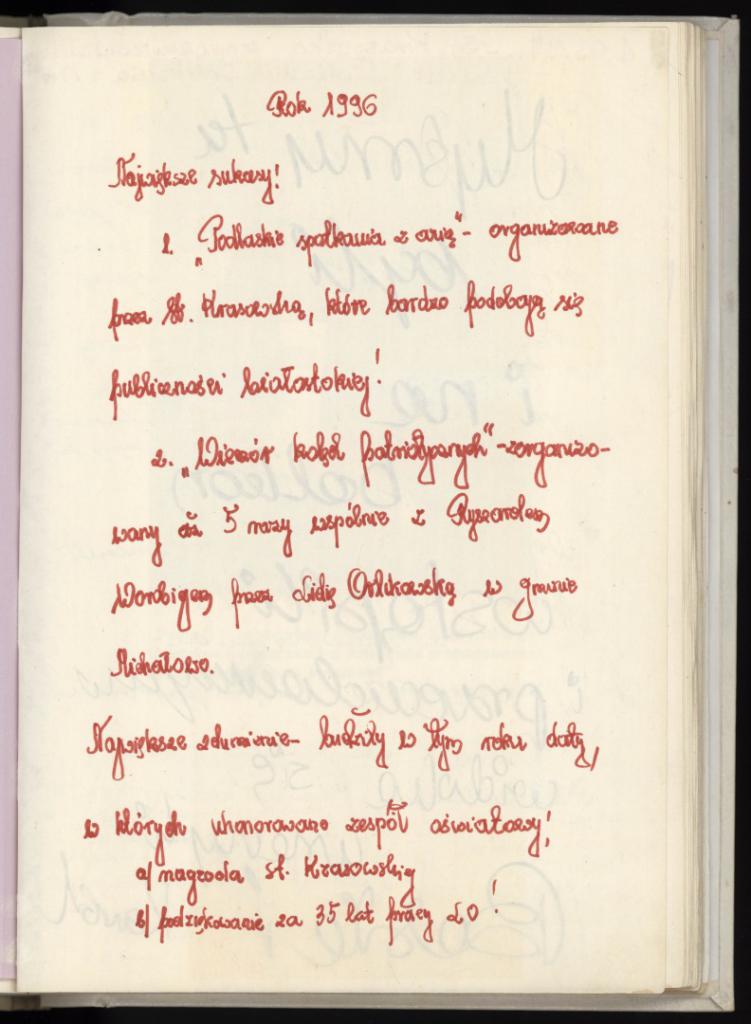 Rok 1996
Największe sukcesy!
1. „Podlaskie spotkania z arią" - organizowane
przez St. Krasowską, które bardzo podobają się
publiczności białostokiej!
2. „Wieczór kolęd patriotycznych" - zorganizo-
wany aż 5 razy wspólnie z Ryszardem
przez Lidię Orlikowską w gminie
Michałowo.
Największe zdumienie - budziły w tym roku daty,
w których uhonorowano zespół oświatowy!
a/ nagroda St. Krasowskiej
b/ podziękowanie za 35 lat pracy LO!